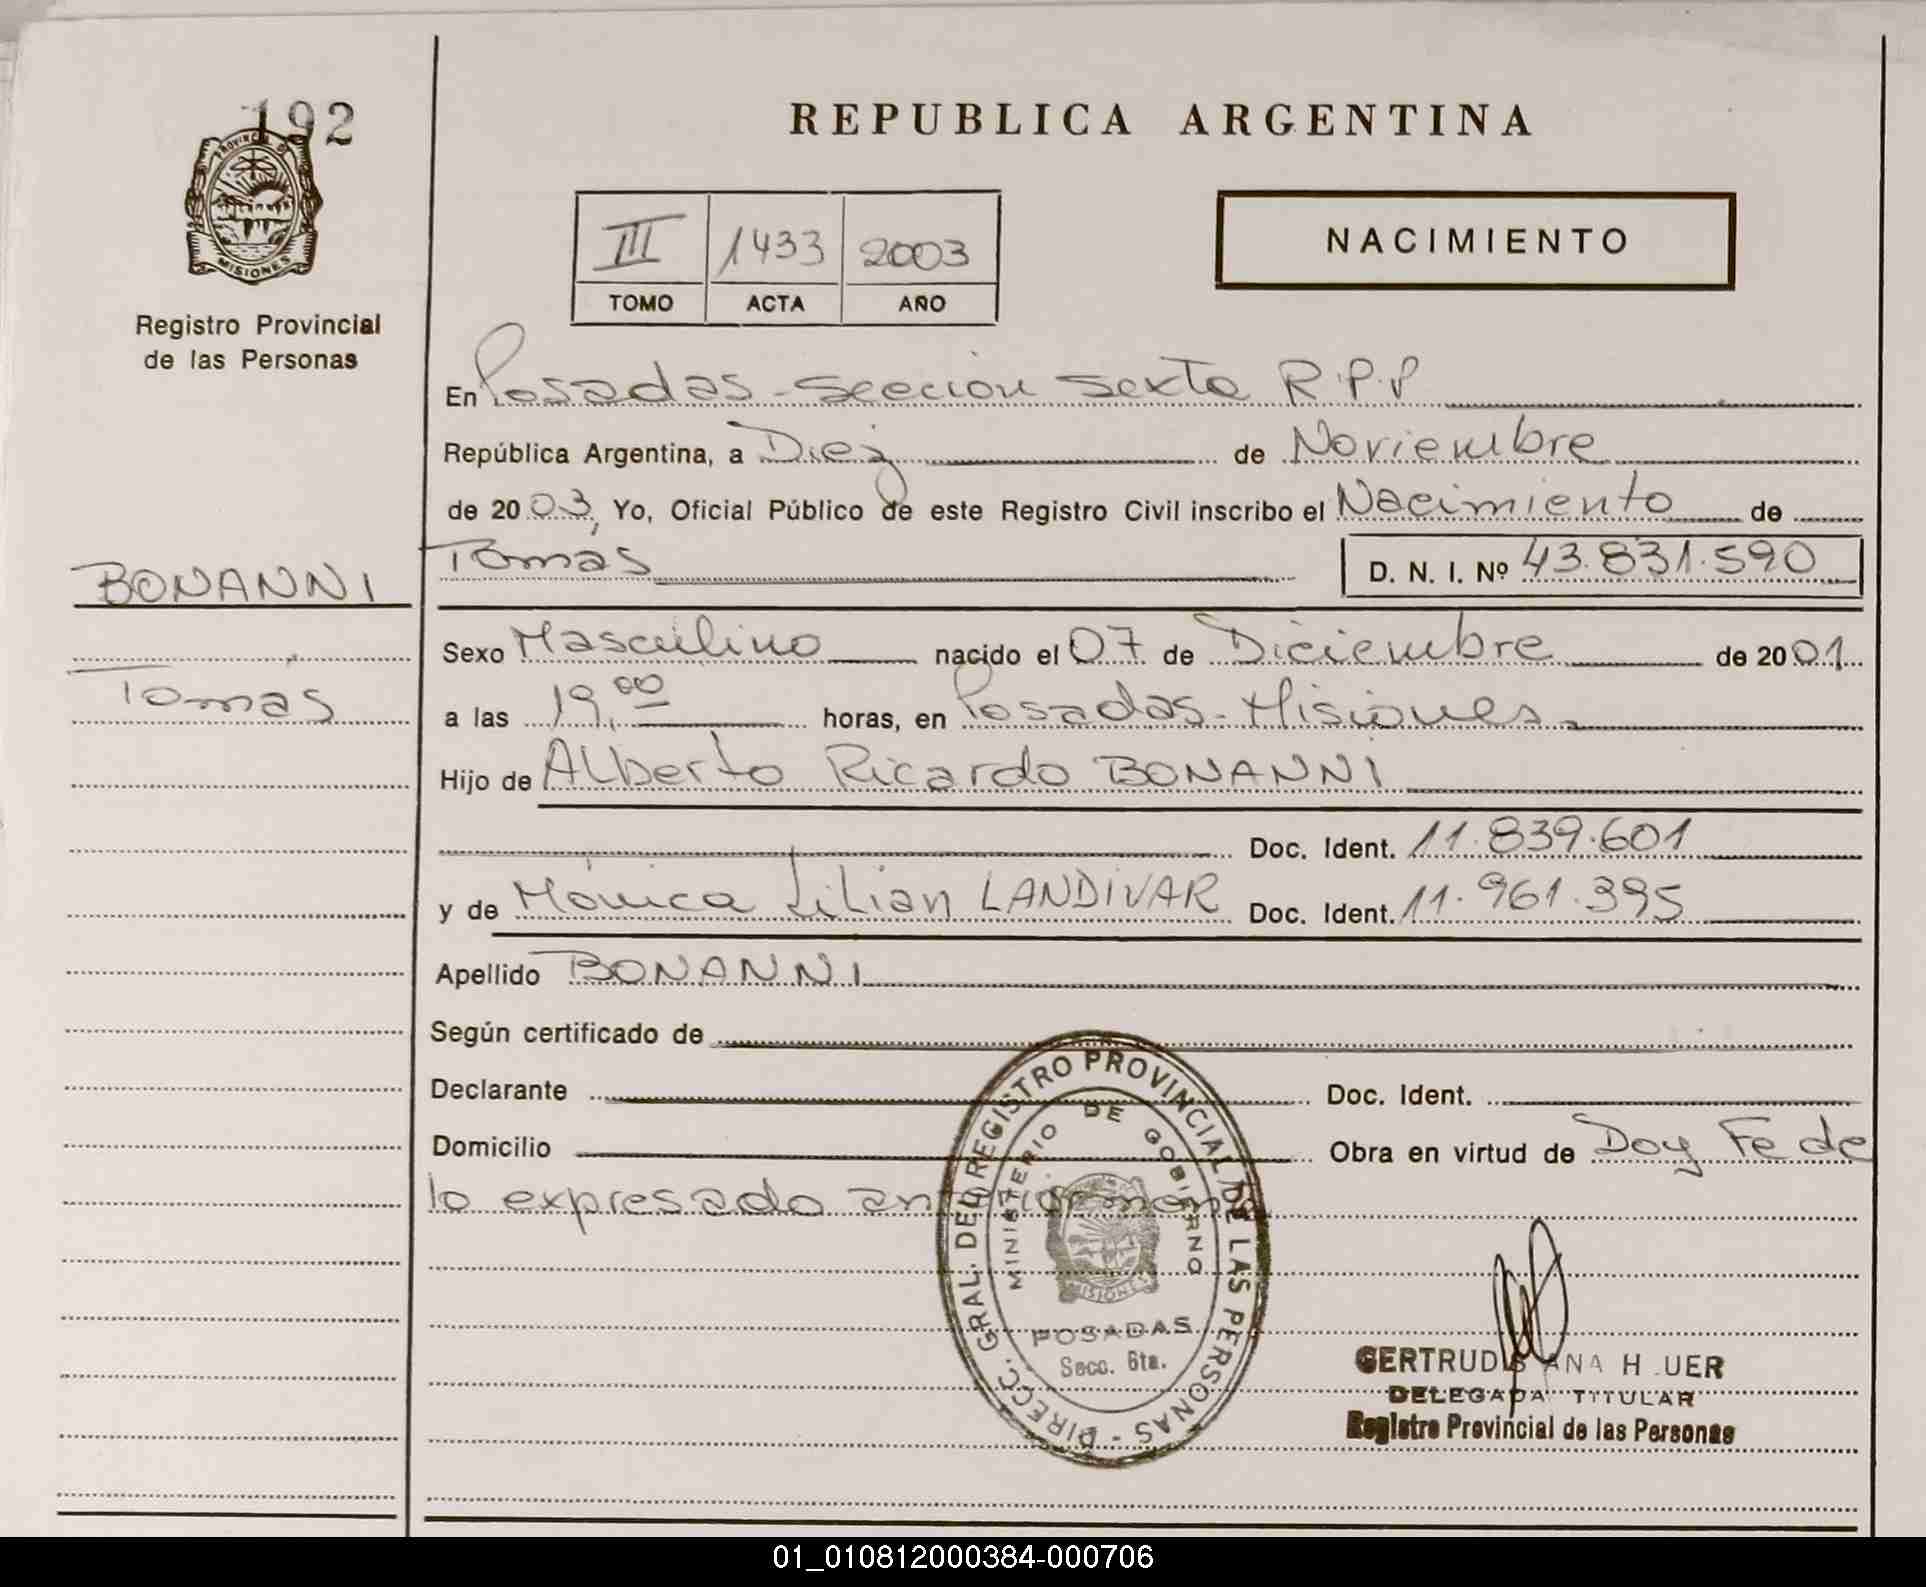 192
PROVINCIA DE
MISIONES
Registro Provincial
de las Personas
REPUBLICA ARGENTINA
III 1433 2003
TOMO ACTA AÑO
NACIMIENTO
En Posadas - Sección Sexta R.P.P
República Argentina, a Diez de Noviembre
de 2003, Yo, Oficial Público de este Registro Civil inscribo el Nacimiento de
Tomás D. N. I. Nº 43.831.590
BONANNI
Tomás
Sexo Masculino nacido el 07 de Diciembre de 2001
a las 19,00 horas, en Posadas - Misiones
Hijo de Alberto Ricardo BONANNI
Doc. Ident. 11.839.601
y de Mónica Lilian LANDIVAR Doc. Ident. 11.961.395
Apellido BONANNI
Según certificado de
Declarante Doc. Ident.
Domicilio Obra en virtud de Doy Fe de
lo expresado anteriormente
DIRECC. GRAL. DEL REGISTRO PROVINCIAL DE LAS PERSONAS -
MINISTERIO DE GOBIERNO
MISIONES
POSADAS
Secc. 6ta.
GERTRUDIS ANA H UER
DELEGADA TITULAR
Registro Provincial de las Personas
01_010812000384-000706